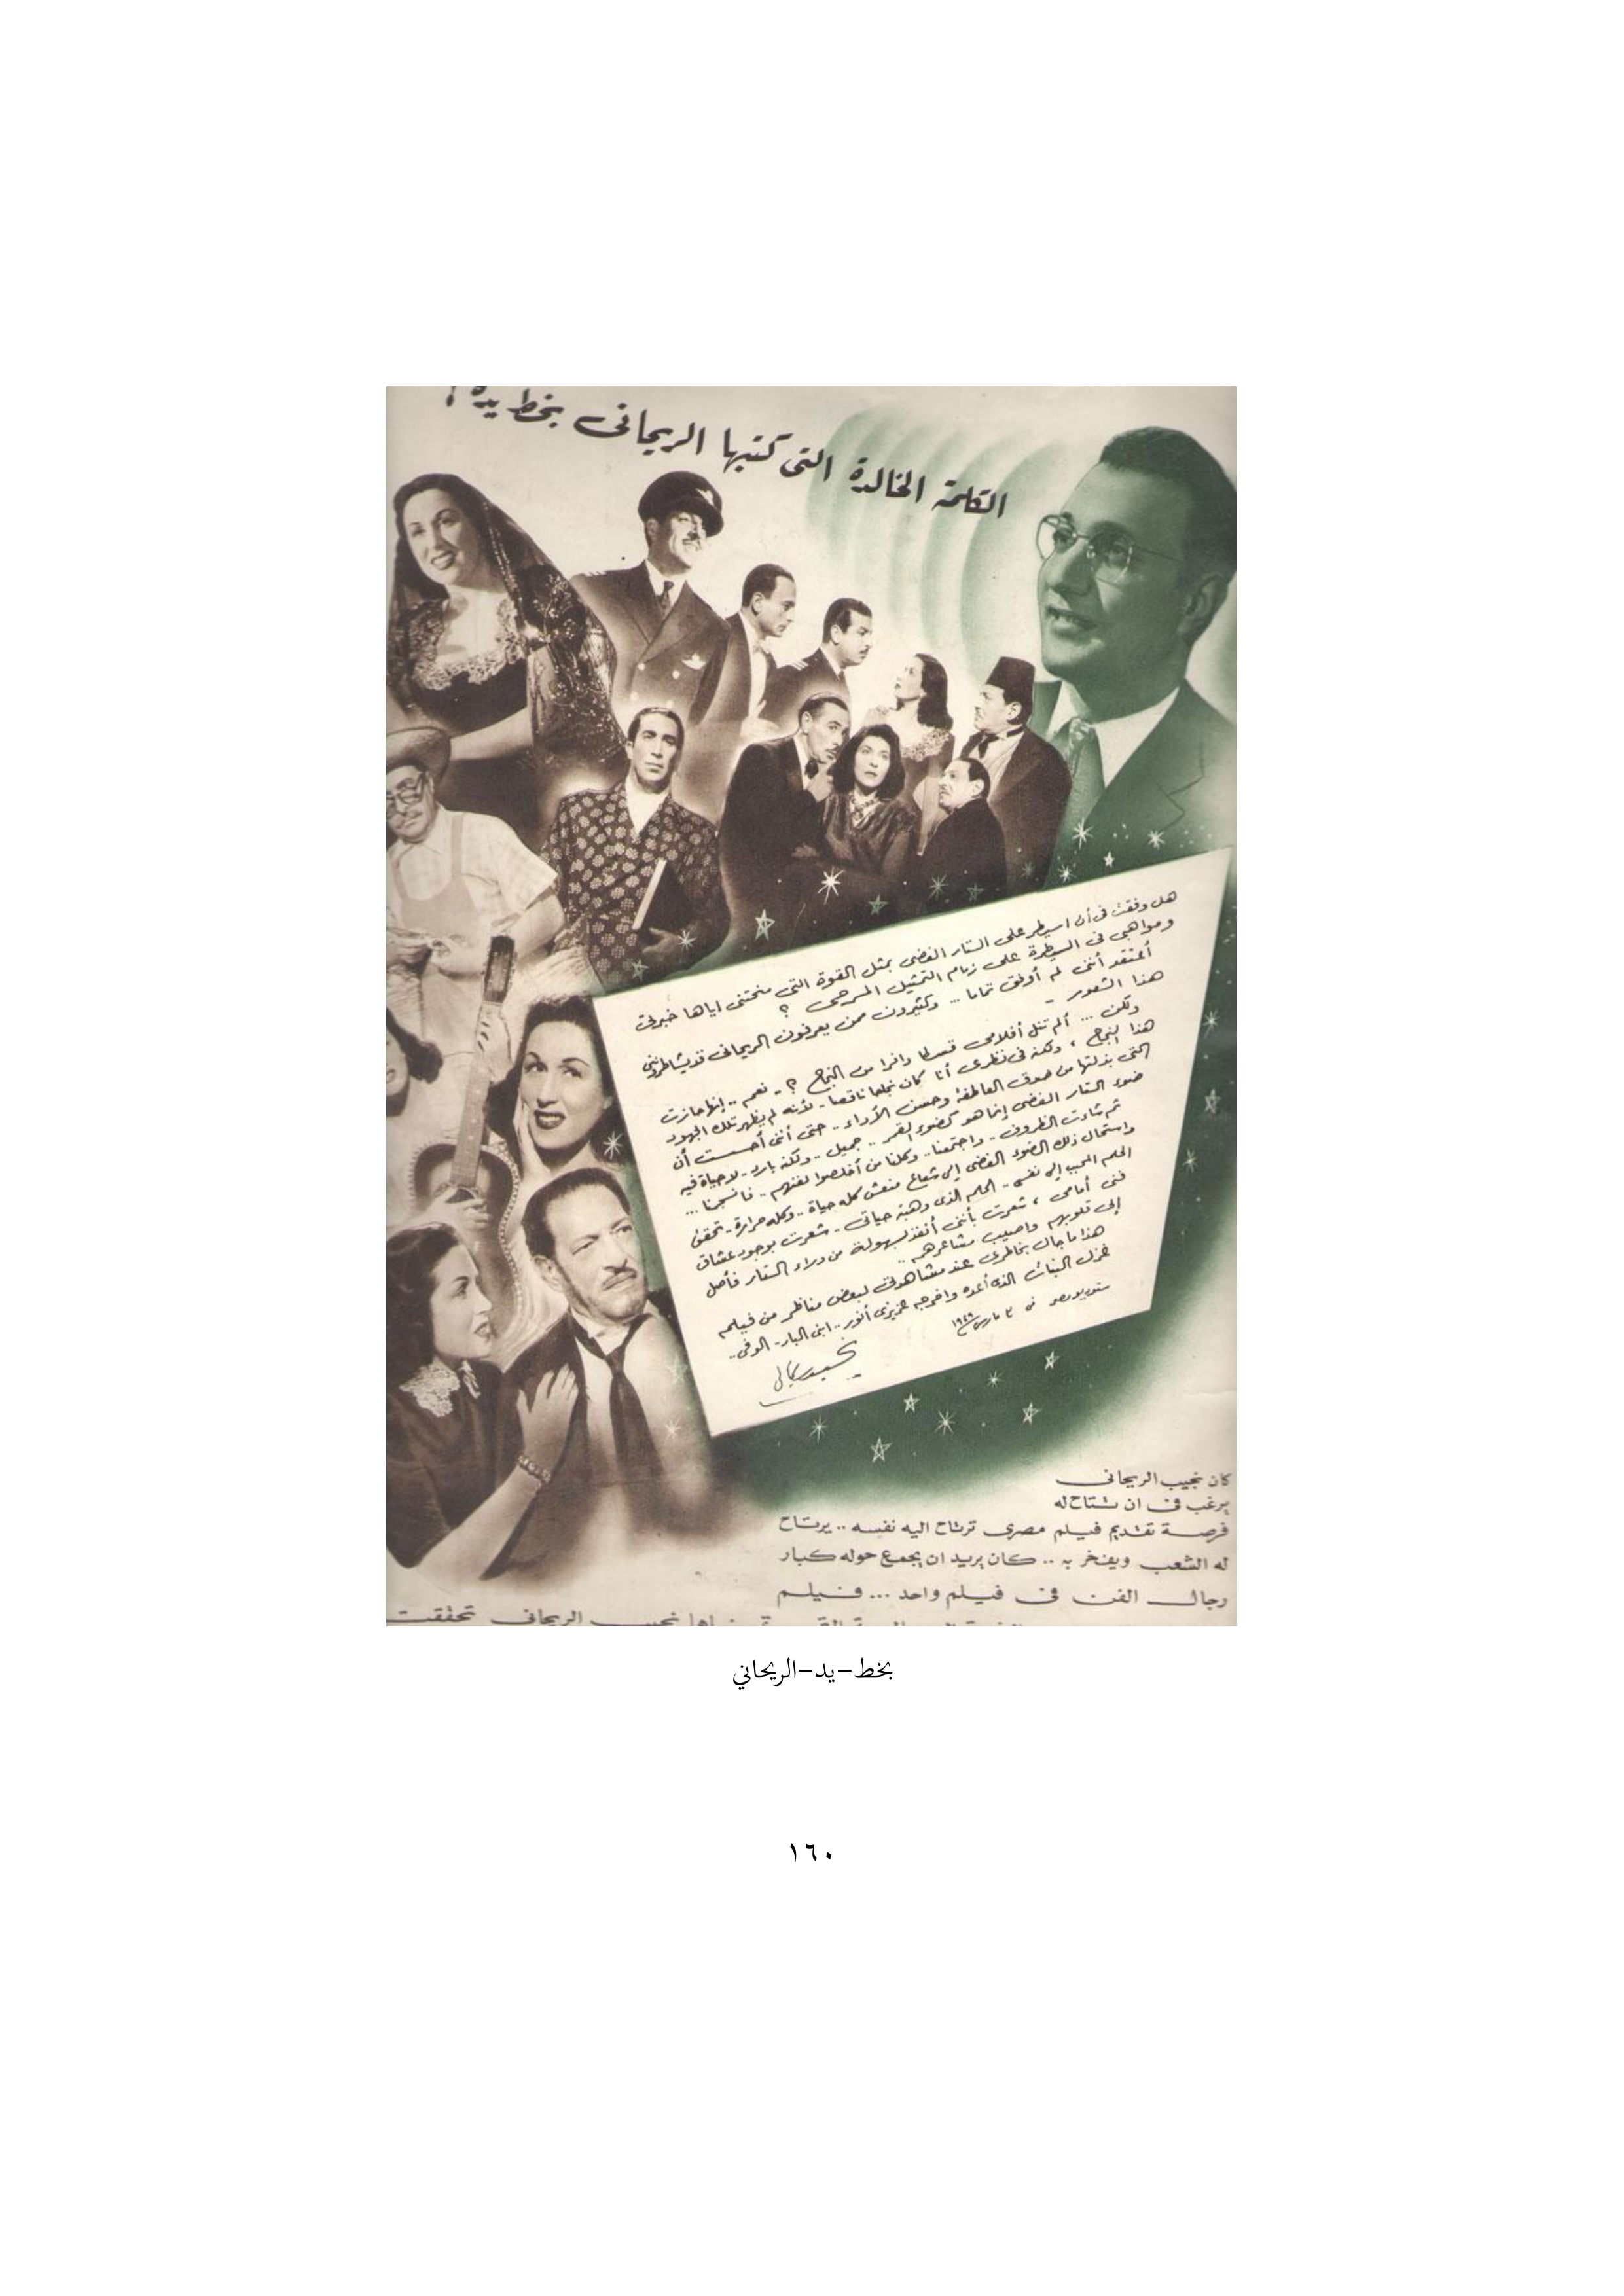 الكلمة الخالدة التى كتبها الريحانى بخط يده !
هل وفقت فى أن اسيطر على الستار الفضى بمثل القوة التى منحتنى اياها خبرتى
ومواهبى فى السيطرة على زمام التمثيل المسرحى ؟
أعتقد أننى لم أوفق تماما ... وكثيرون ممن يعرفون الريحانى قد يشاطروننى
هذا الشعور -
ولكن ... ألم تنل أفلامى قسطا وافرا من النجاح ؟ - نعم .. إنها حازت
هذا النجاح ، ولكنه فى نظرى أنا كان نجاحا ناقصا - لأنه لم يظهر تلك الجهود
التى بذلتها من صدق العاطفة وحسن الأداء .. حتى أننى أحسست أن
ضوء الستار الفضى إنما هو كضوء القمر .. جميل .. ولكنه بارد - لا حياة فيه
ثم شاءت الظروف .. واجتمعنا .. وكلنا من أخلصوا لفنهم .. فانسجمنا ...
واستحال ذلك الضوء الفضى إلى شعاع منعش كله حياة .. وكله حرارة - تحقق
الحلم المحبب إلى نفسى .. الحلم الذى وهبته حياتى - شعرت بوجود عشاق
فنى أمامى ، شعرت بأننى أنفذ بسهولة من وراء الستار فأصل
إلى قلوبهم واصيب مشاعرهم ..
هذا ما جال بخاطرى عند مشاهدتى لبعض مناظر من فيلم
غزل البنات الذى أعده واخرجه عزيزى أنور .. ابنى البار - الوفى ..
ستوديو مصر فى ٣ مارس ١٩٤٩
نجيب الريحانى
كان نجيب الريحانى
يرغب فى ان تتاح له
فرصة تقديم فيلم مصرى ترتاح اليه نفسه .. يرتاح
له الشعب ويفخر به .. كان يريد ان يجمع حوله كبار
رجال الفن فى فيلم واحد ... فيلم
نجيب الريحانى تحققت
بخط–يد–الريحاني
١٦٠